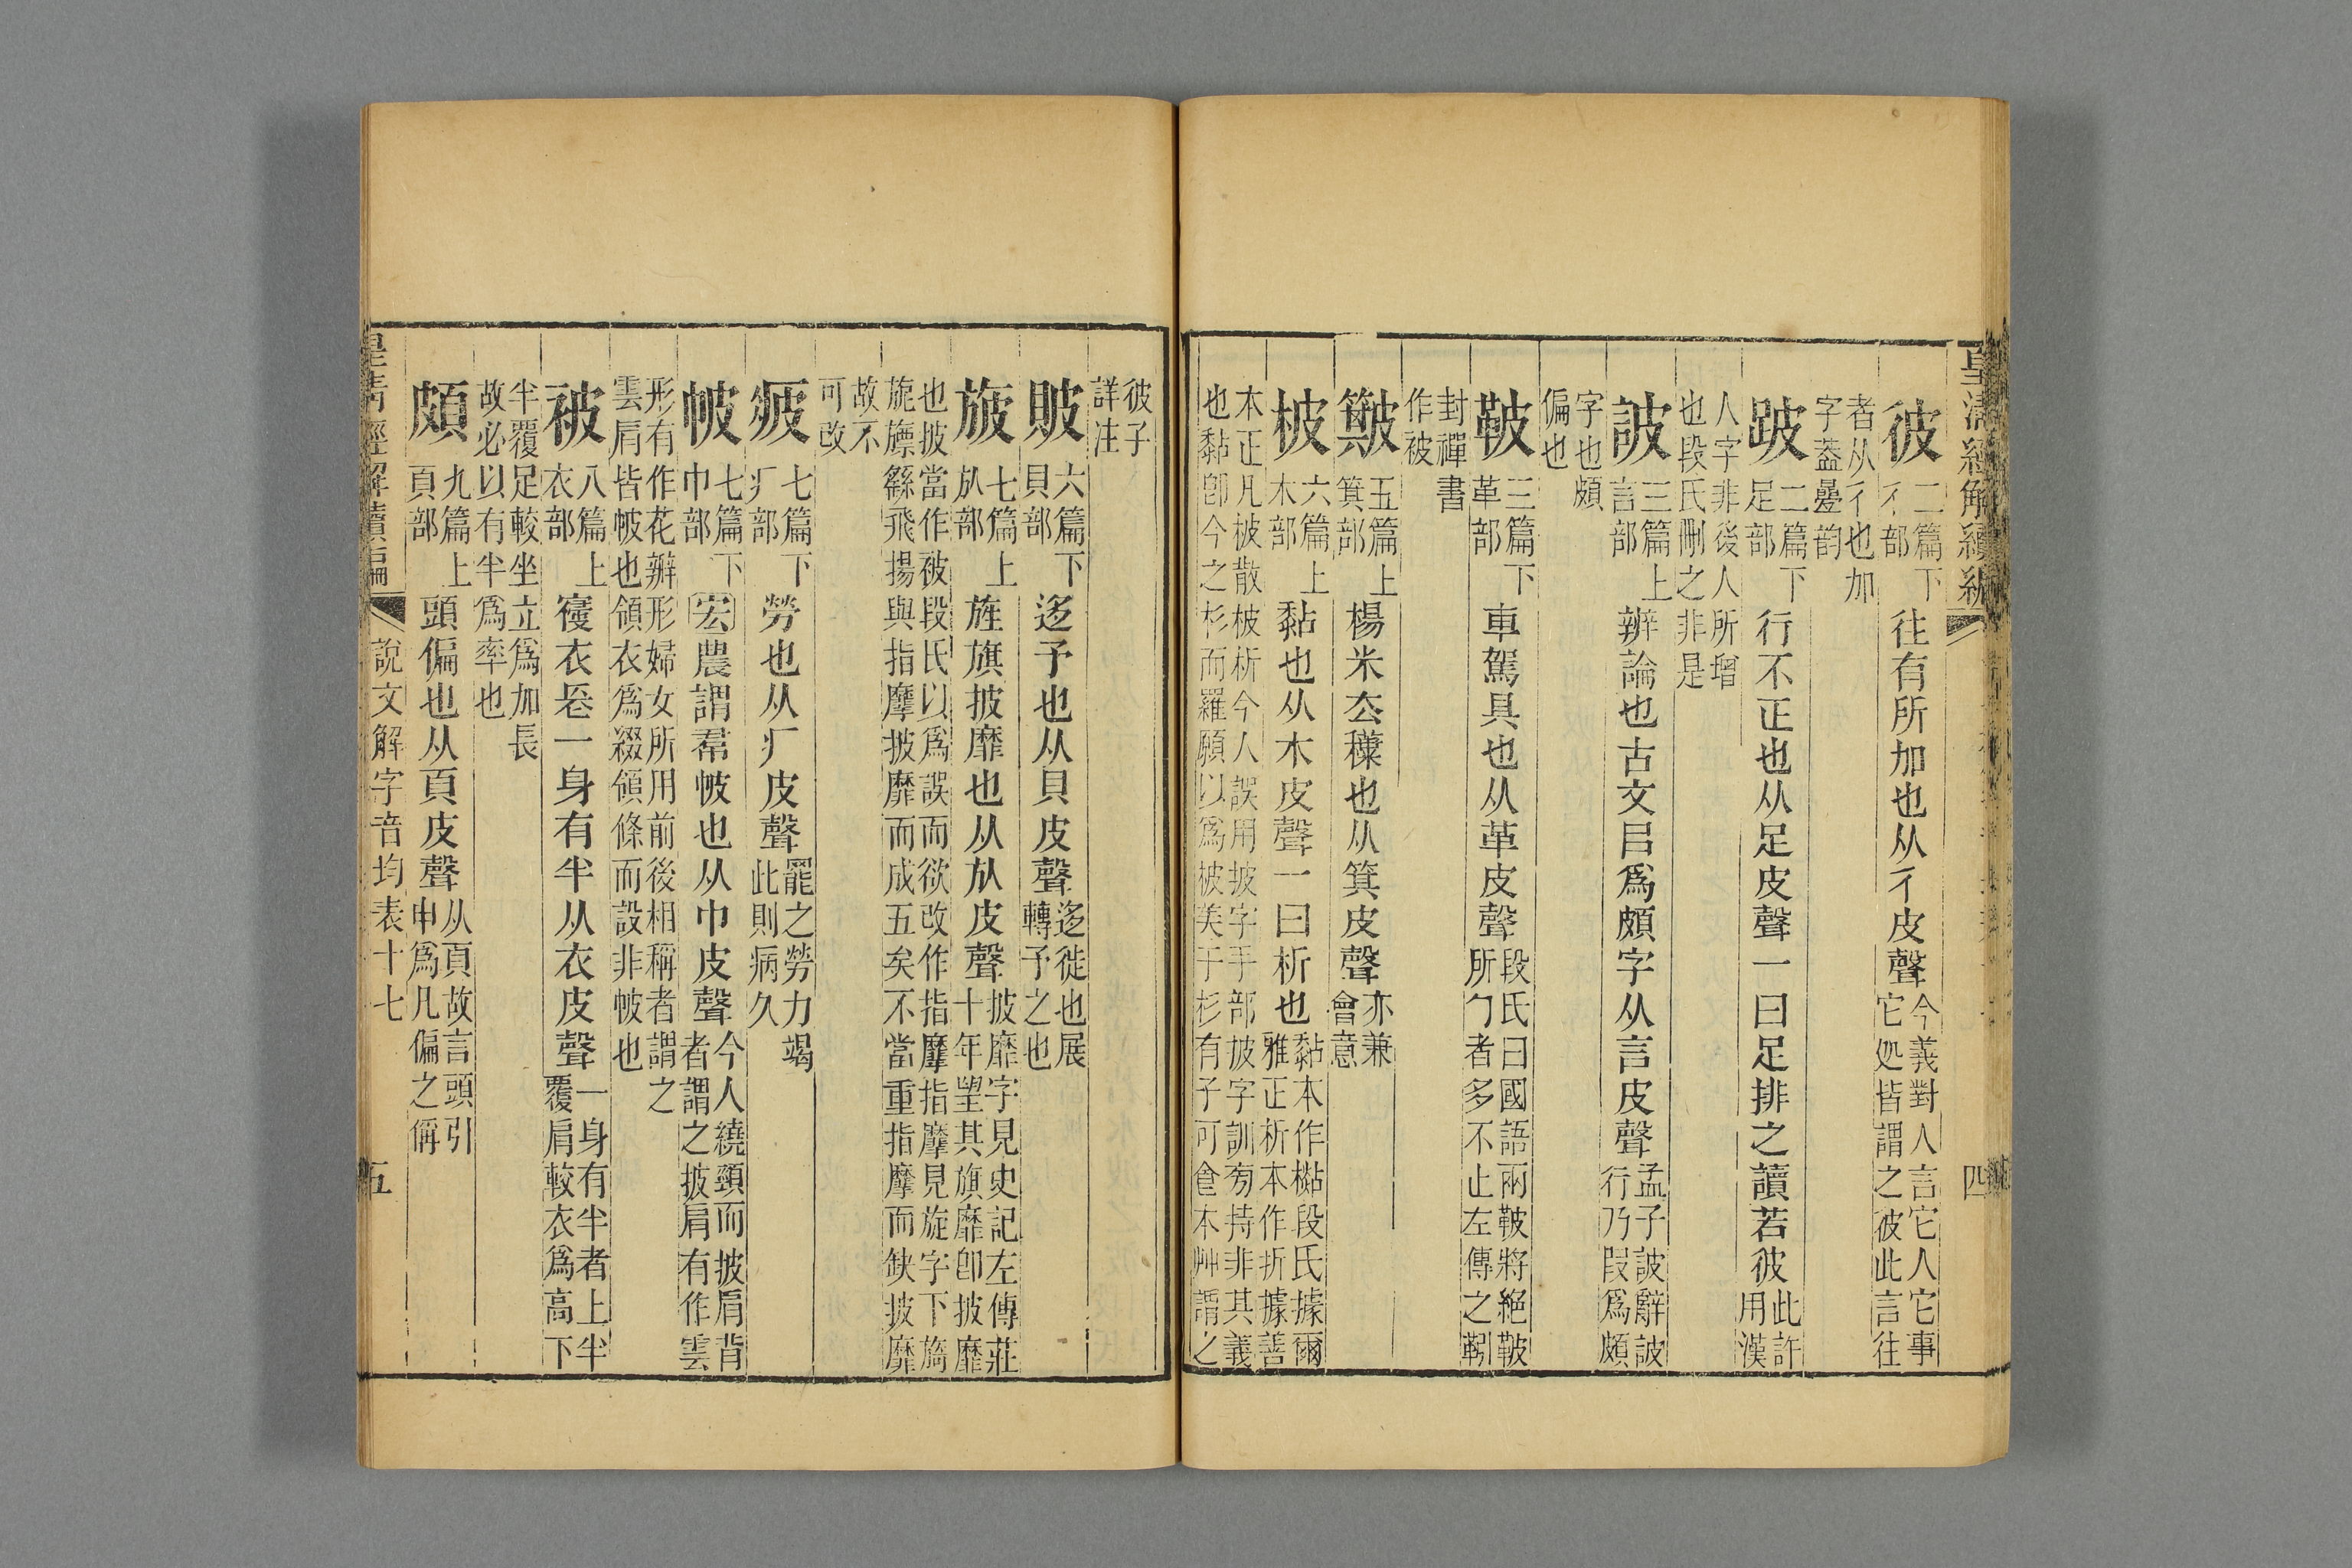 皇清經解續編
四
彼二篇下彳部往有所加也从彳皮聲今義對人言它人它事它処皆謂之彼此言往
者从彳也加字葢曡韵
跛二篇下足部行不正也从足皮聲一曰足排之讀若彼此許用漢
人字非後人所增也段氏刪之非是
詖三篇上言部辨論也古文㠯爲頗字从言皮聲孟子詖辭詖行乃叚爲頗
字也頗偏也
鞁三篇下革部車駕具也从革皮聲段氏曰國語兩鞁將絕鞁所勹者多不止左傳之靷
封禪書作被
簸五篇上箕部楊米去穅也从箕皮聲亦兼會意
柀六篇上木部黏也从木皮聲一曰析也黏本作檆段氏據爾雅正析本作折據善
本正凡柀散柀析今人誤用披字手部披字訓旁持非其義也黏卽今之杉而羅願以爲柀美于杉有子可食本艸謂之
彼子詳注
貱六篇下貝部迻予也从貝皮聲迻徙也展轉予之也
旇七篇上㫃部旌旗披靡也从㫃皮聲披靡字見史記左傳莊十年望其旗靡卽披靡
也披當作被段氏以爲誤而欲改作指摩指摩見旋字下旖旎旚繇飛揚與指摩披靡而成五矣不當重指摩而缺披靡
故不可改
疲七篇下疒部勞也从疒皮聲罷之勞力竭此則病久
帔七篇下巾部宏農謂帬帔也从巾皮聲今人繞頸而披肩背者謂之披肩有作雲
形有作花瓣形婦女所用前後相稱者謂之雲肩皆帔也領衣爲綴領條而設非帔也
被八篇上衣部寑衣長一身有半从衣皮聲一身有半者上半覆肩較衣爲高下
半覆足較坐立爲加長故必以有半爲率也
頗九篇上頁部頭偏也从頁皮聲从頁故言頭引申爲凡偏之偁
皇清經解續編
說文解字音均表十七
五